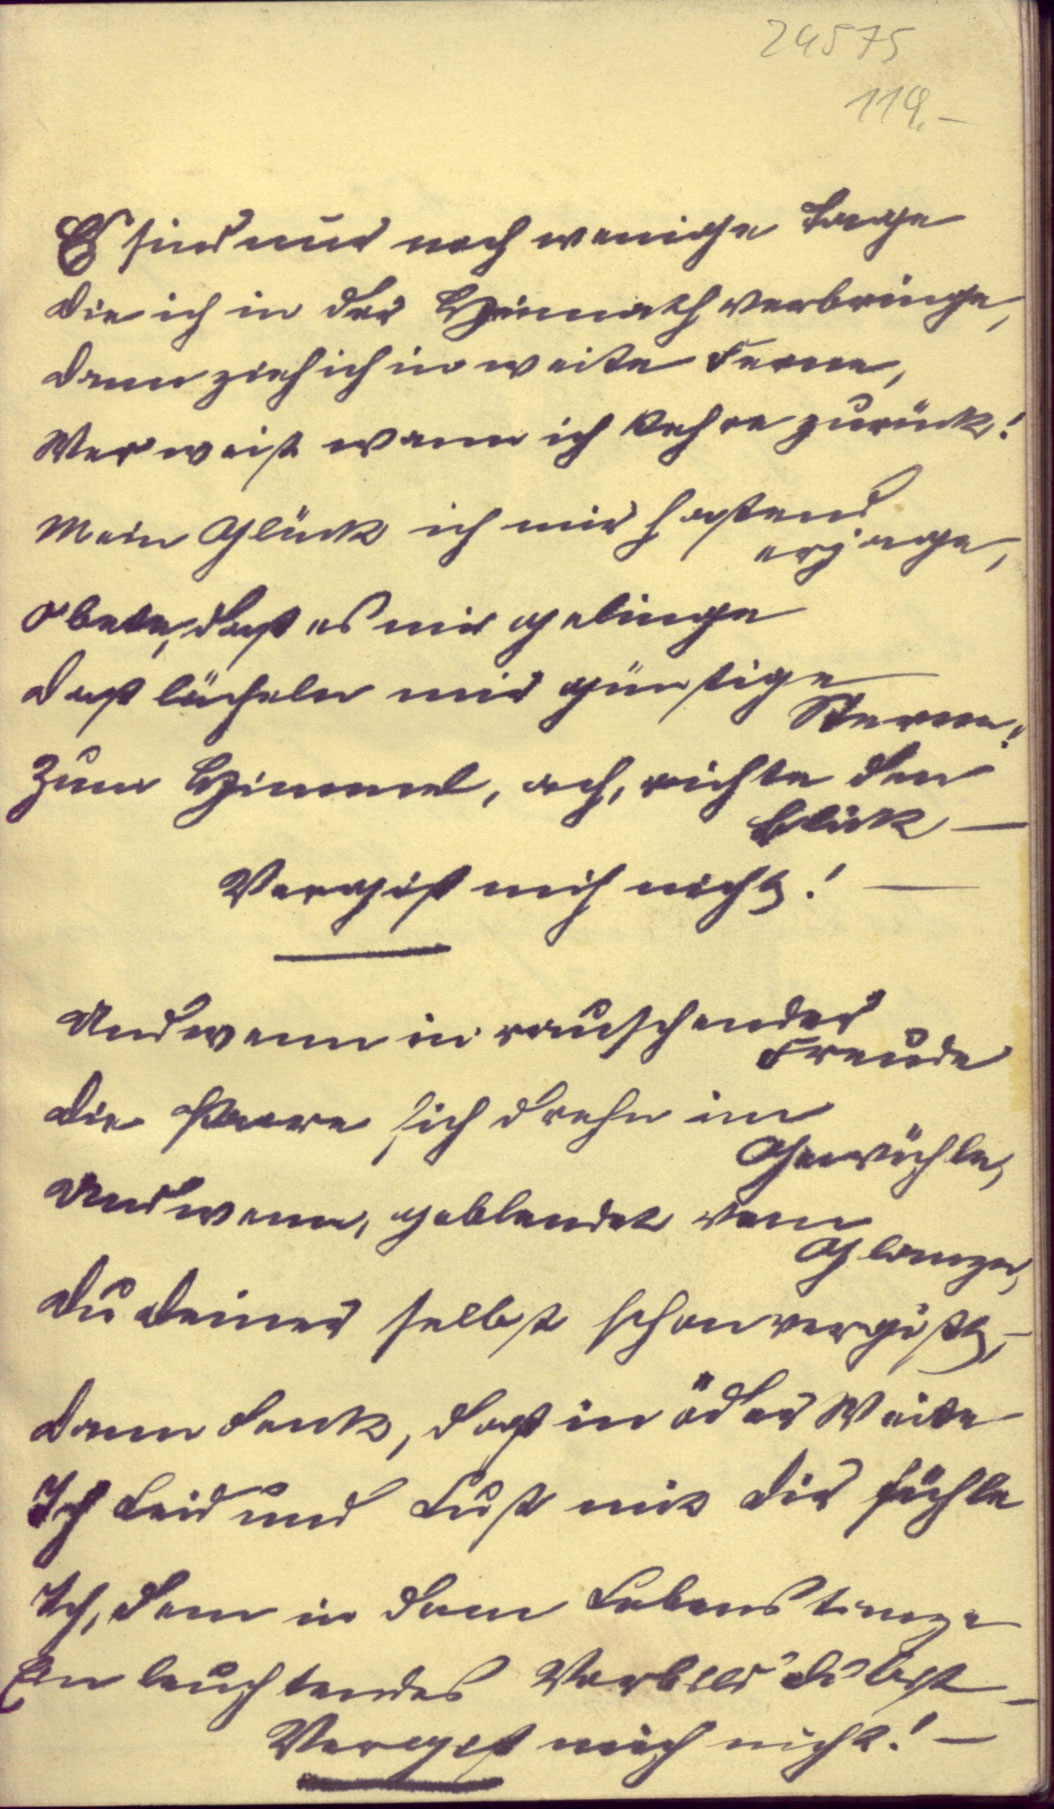 24575
119.-
Es sind nur noch wenige Tage
Die ich in der Heimath verbringe,
Dann zieh ich in weite Ferne,
Wer weiß wann ich kehre zurück!
Mein Glück ich mir hastend
erjage,
O bete, daß es mir gelinge
Daß lächeln mir günstige
Sterne!
Zum Himmel, ach, richte den
Blick —
Vergiß mich nicht! —
Und wenn in rauschender
Freude
Die Paare sich drehn im
Gewühle,
Und wenn, geblendet vom
Glanze,
Du Deiner selbst schon vergißt, –
Dann denk, daß in öder Weite
Ich Leid und Lust mit Dir fühle
Ich, dem in dem Lebenstanze
Ein leuchtendes Vorbild Du bist –
Vergiß mich nicht! –